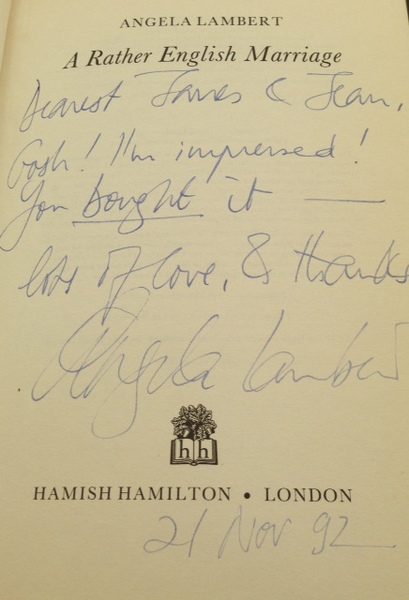 ANGELA LAMBERT
A Rather English Marriage
Dearest James & Jean,
Gosh! I'm impressed!
You bought it —
lots of love, & thanks
Angela Lambert
h h
HAMISH HAMILTON • LONDON
21 Nov 92